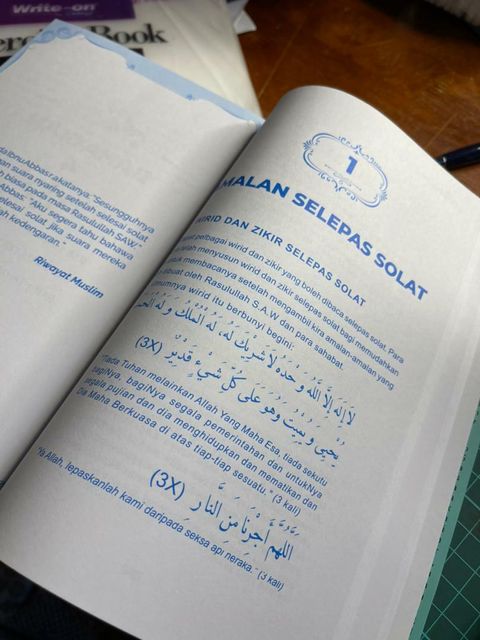 Write-on
Book
Ibnu Abbas r.a katanya: "Sesungguhnya
suara nyaring setelah selesai solat
biasa pada masa Rasulullah SAW."
Abbas: "Aku segera tahu bahawa
selesai solat jika suara mereka
kedengaran."
Riwayat Muslim
1
MALAN SELEPAS SOLAT
WIRID DAN ZIKIR SELEPAS SOLAT
pelbagai wirid dan zikir yang boleh dibaca selepas solat. Para
telah menyusun wirid dan zikir selepas solat bagi memudahkan
untuk membacanya setelah mengambil kira amalan-amalan yang
dibuat oleh Rasulullah S.A.W dan para sahabat.
umumnya wirid itu berbunyi begini:
لَا إِلَهَ إِلَّا اللهُ وَحْدَهُ لَا شَرِيْكَ لَهُ، لَهُ الْمُلْكُ وَلَهُ الْحَمْدُ
يُحْيِي وَيُمِيْتُ وَهُوَ عَلَى كُلِّ شَيْءٍ قَدِيْرٌ (3X)
"Tiada Tuhan melainkan Allah Yang Maha Esa, tiada sekutu
bagiNya, bagiNya segala pemerintahan dan untukNya
segala pujian dan dia menghidupkan dan mematikan dan
Dia Maha Berkuasa di atas tiap-tiap sesuatu." (3 kali)
اللَّهُمَّ أَجِرْنَا مِنَ النَّارِ (3X)
"Ya Allah, lepaskanlah kami daripada seksa api neraka." (3 kali)